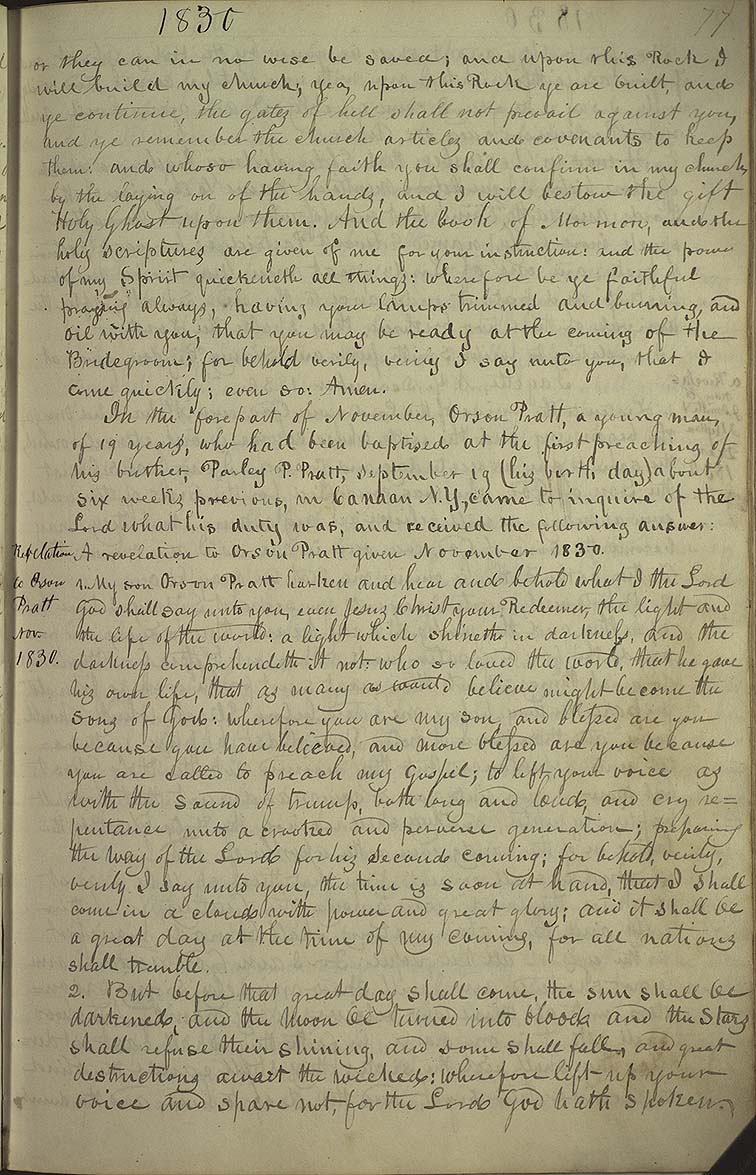 1830
77
or they can in no wise be saved; and upon this Rock I
will build my church; yea, upon this Rock ye are built, and
ye continue, the gates of hell shall not prevail against you,
and ye remember the church articles and covenants to keep
them: and whoso having faith you shall confirm in my church,
by the laying on of the hands, and I will bestow the gift
Holy Ghost upon them. And the book of Mormon, and the
holy scriptures are given of me for your instruction: and the power
of my Spirit quickeneth all things: wherefore be ye faithful
praying always, having your lamps trimmed and burning, and
oil with you, that you may be ready at the coming of the
Bridegroom; for behold verily, verily I say unto you, that I
come quickly; even so: Amen.
In the forepart of November, Orson Pratt, a young man,
of 19 years, who had been baptised at the first preaching of
his brother, Parley P. Pratt, September 19 (his birth day) about
six weeks previous, in Canaan N.Y, came to inquire of the
Lord what his duty was, and received the following answer:
Revelation
to Orson
Pratt
Nov.
1830.
A revelation to Orson Pratt given November 1830.
1. My son Orson Pratt harken and hear and behold what I the Lord
God shall say unto you, even Jesus Christ your Redeemer, the light and
the life of the world: a light which shineth in darkness, and the
darkness comprehendeth it not: who so loved the world, that he gave
his own life, that as many as would believe might become the
sons of God: wherefore you are my son, and blessed are you
because you have believed, and more blessed are you because
you are called to preach my Gospel; to lift your voice as
with the sound of trump, both long and loud, and cry re=
pentance unto a crooked and perverse generation; preparing
the way of the Lord for his second coming; for behold, verily,
verily I say unto you, the time is soon at hand, that I shall
come in a cloud with power and great glory; and it shall be
a great day at the time of my coming, for all nations
shall tremble.
2. But before that great day shall come, the sun shall be
darkened, and the Moon be turned into blood, and the Stars
shall refuse their shining, and some shall fall, and great
destructions await the wicked: wherefore lift up your
voice and spare not, for the Lord God hath spoken.